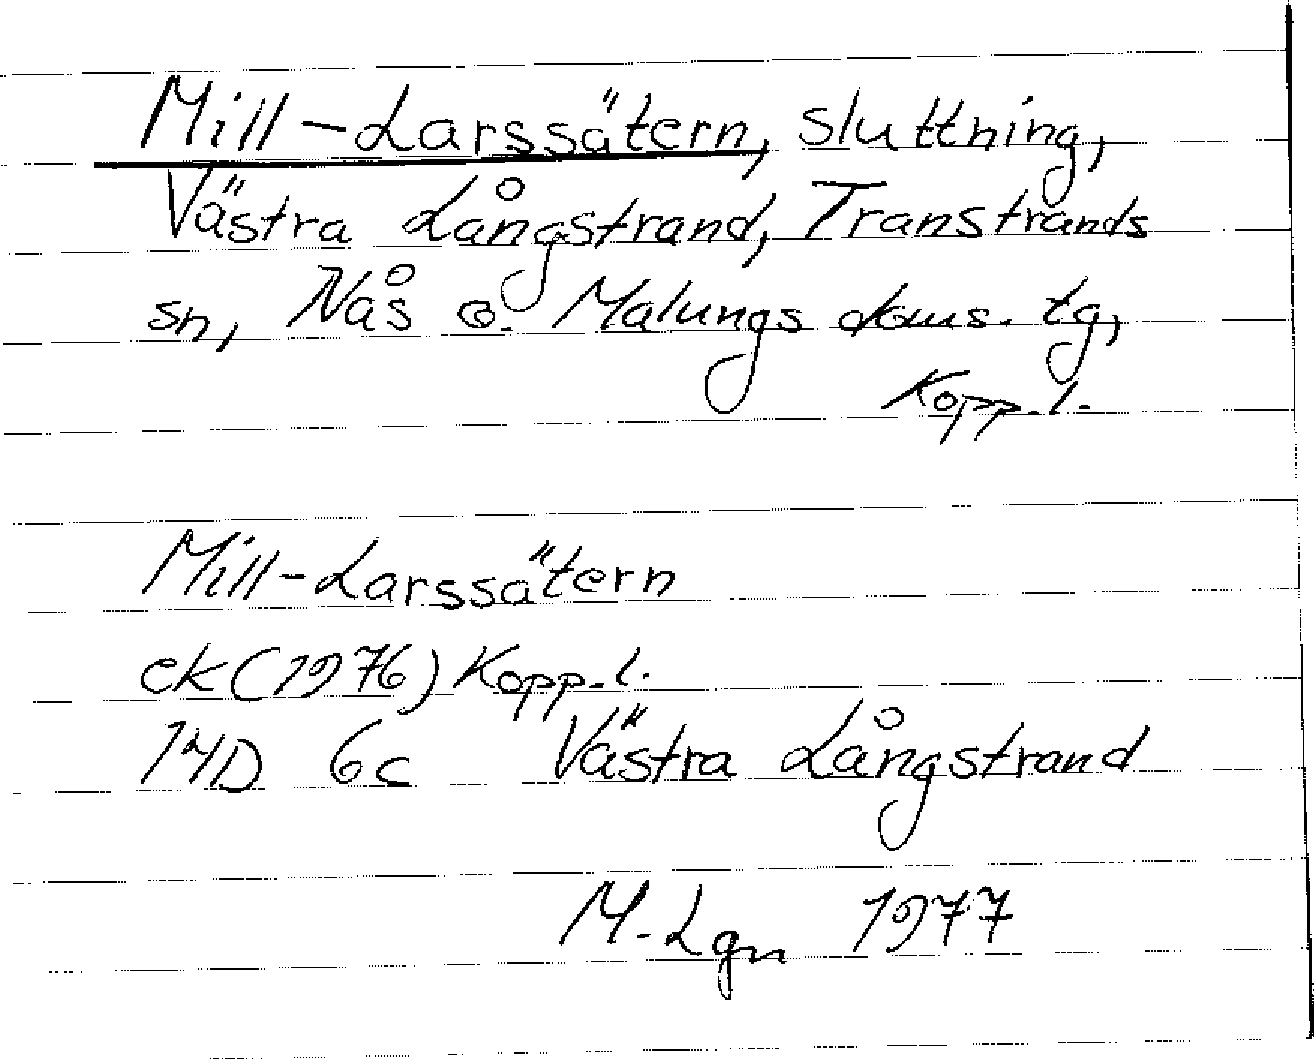 Mill-Larssätern, sluttning,
Västra Långstrand, Transtrands
sn, Nås o. Malungs doms. tg,
Kopp.l.
Mill-Larssätern
ek (1976) Kopp.l.
14D 6c Västra Långstrand
M-Lgn 1977